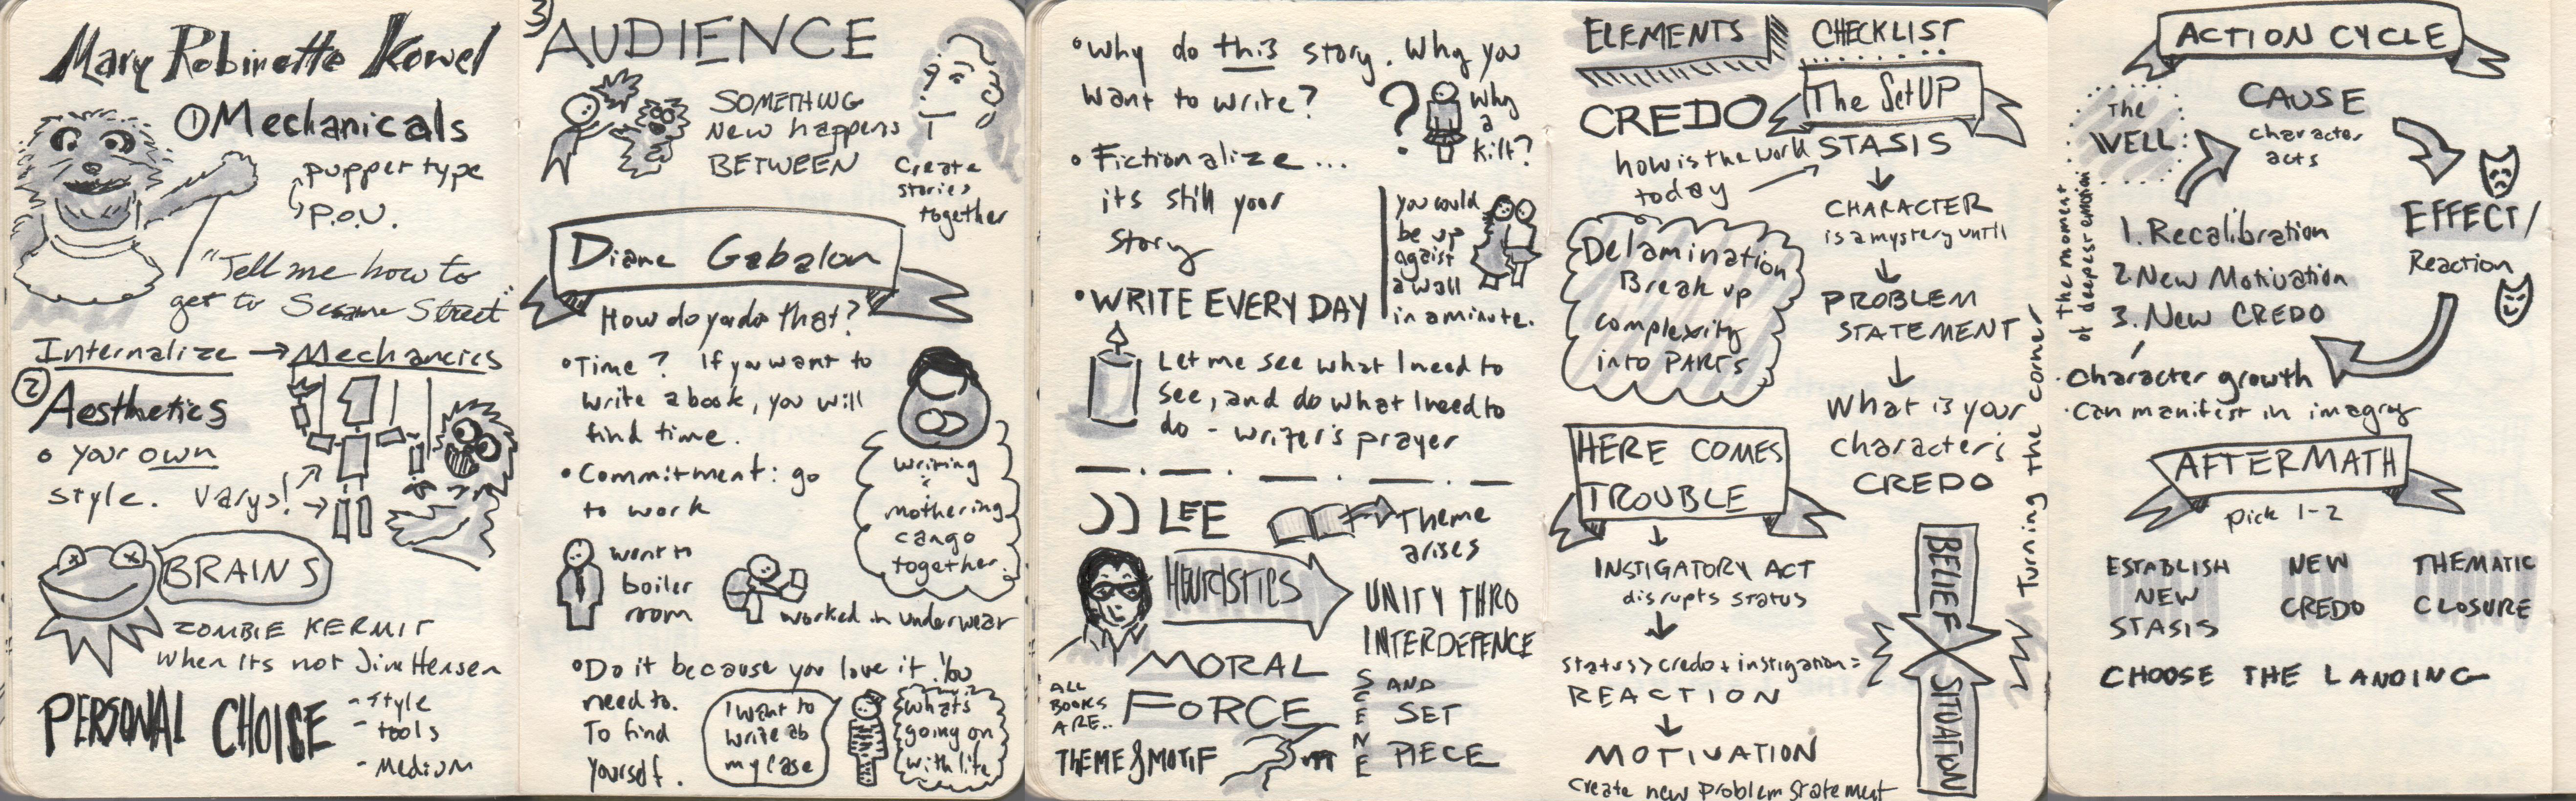 Mary Robinette Kowel
① Mechanicals
puppet type
P.O.V.
"Tell me how to
get to Sesame Street"
Internalize → Mechanics
② Aesthetics
• your own
style. Varys!
BRAINS
ZOMBIE KERMIT
when its not Jim Hensen
PERSONAL CHOISE
- Style
- tools
- Medium
3) AUDIENCE
SOMETHING
New happens
BETWEEN
Create
stories
together
Diane Gabalon
How do you do that?
• Time? If you want to
write a book, you will
find time.
• Commitment: go
to work
writing
&
mothering
can go
together.
went to
boiler
room
worked in underwear
• Do it because you love it. You
need to.
To find
yourself.
I want to
write ab
my case
whats
going on
with life
• Why do this story. Why you
want to write?
Why
a
kilt?
• Fictionalize...
its still your
story
you could
be up
agaist
a wall
in a minute.
• WRITE EVERY DAY
Let me see what I need to
see, and do what I need to
do - writer's prayer
JJ LEE
Theme
arises
HEURISTICS
UNITY THRO
INTERDEPENCE
MORAL
FORCE
ALL
BOOKS
ARE..
THEME & MOTIF
SCENE
AND
SET
PIECE
ELEMENTS
CREDO
how is the work
today
Delamination
Break up
complexity
into PARTS
HERE COMES
TROUBLE
↓
INSTIGATORY ACT
disrupts status
↓
status > credo + instigation =
REACTION
↓
MOTIVATION
create new problem statement
CHECKLIST
The SetUP
STASIS
↓
CHARACTER
is a mystery until
↓
PROBLEM
STATEMENT
↓
What is your
character's
CREDO
BELIEF
SITUATION
Turning the corner
ACTION CYCLE
The
WELL
the moment
of deepest emotion
CAUSE
character
acts
EFFECT/
Reaction
1. Recalibration
2. New Motivation
3. New CREDO
• Character growth
• Can manifest in imagry
AFTERMATH
pick 1-2
ESTABLISH
NEW
STASIS
NEW
CREDO
THEMATIC
CLOSURE
CHOOSE THE LANDING